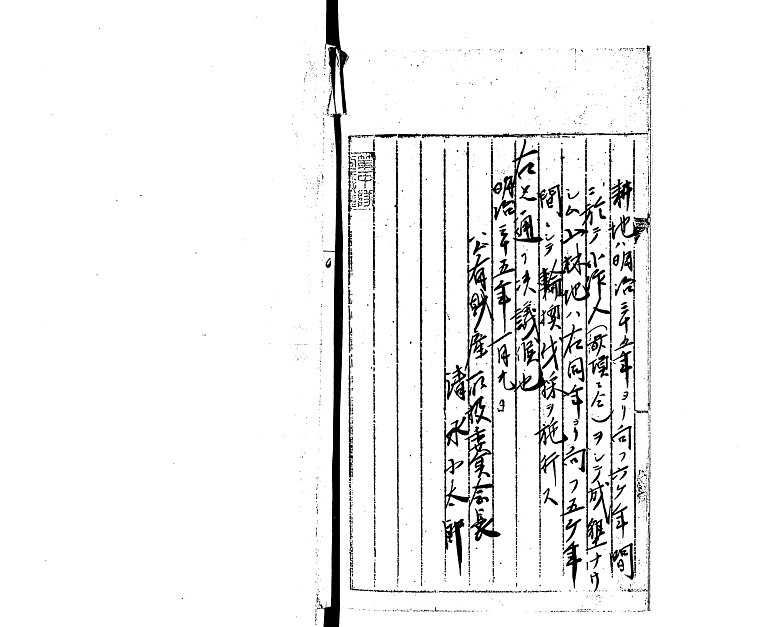 耕地ハ明治三十五年ヨリ向フ六ケ年間
ニ於テ小作人ヲシテ成墾ナサ
シム山林地ハ右同年ヨリ向フ五ケ年
間ニシテ輪換伐採ヲ施行ス
右之通リ決議候也
明治三十五年一月九日
公有財産取扱委員会長
清水小太郎